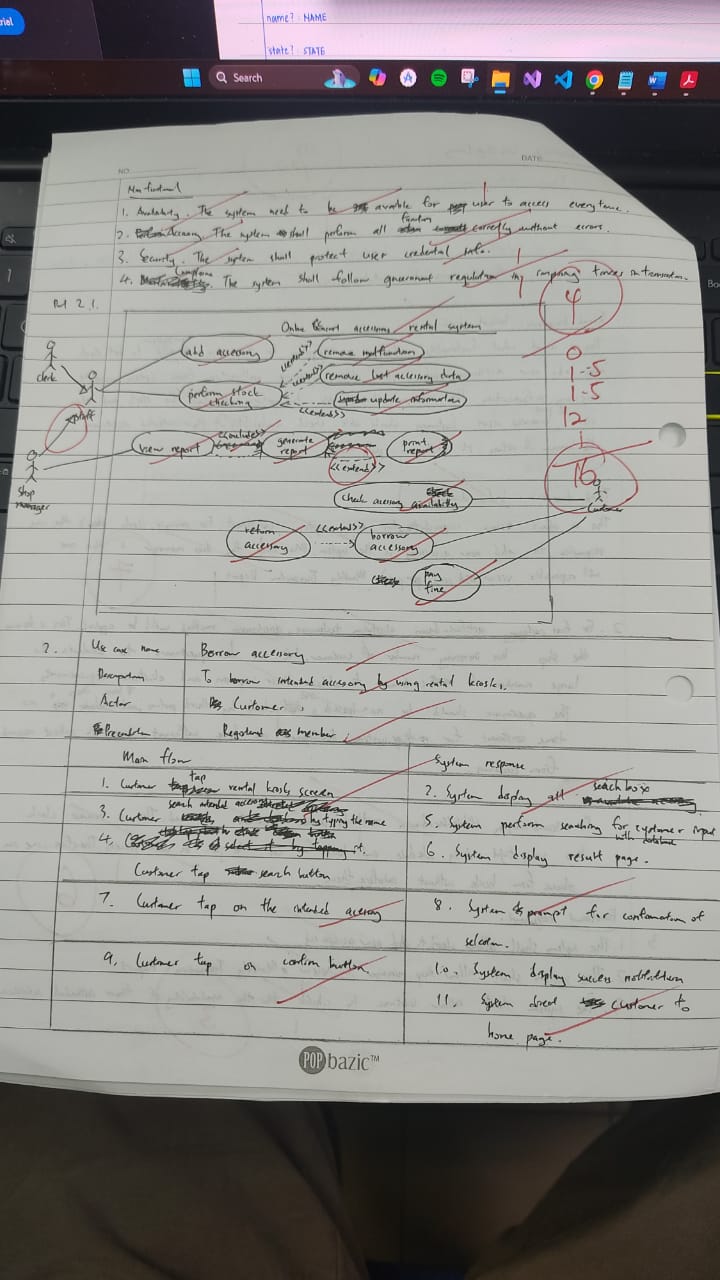 rial
name? : NAME
state? : STATE
Search
NO
DATE
Non functional
1. Availability. The system need to be available for user to access everytime.
2. Accuracy. The system shall perform all function correctly without errors.
3. Security. The system shall protect user credential info.
4. The system shall follow government regulation by in transaction.
4
2.1.
Online accessory rental system
0
1.5
1.5
12
1
16
clerk
staff
shop manager
Customer
add accessory
<<extend>>
remove malfunction
<<extend>>
remove lost accessory data
perform stock checking
<<extend>>
update information
view report
<<include>>
generate report
<<extend>>
print report
check accessory availability
return accessory
<<extend>>
borrow accessory
pay fine
2.
Use case name
Borrow accessory
Description
To borrow intended accessory by using rental kiosks.
Actor
Customer.
Precondition
Registered member
Main flow
System response
1. Customer tap rental kiosk screen
2. System display all search box
3. Customer search intended accessory by typing the name
5. System perform searching for customer input with database
4.
Customer tap search button
6. System display result page.
7. Customer tap on the intended accessory
8. System prompt for confirmation of selection.
9. Customer tap on confirm button.
10. System display success notification
11. System direct customer to home page.
POP bazic™